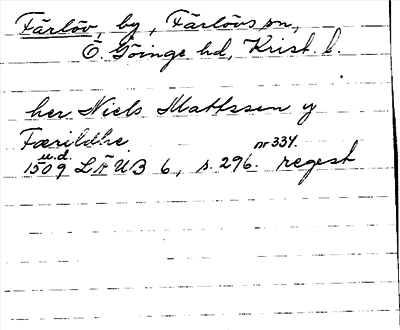 Färlöv, by, Färlövs sn,
Ö. Göinge hd, Krist. l.
her Niels Matssen y
Færildhe.
u.d.
1509 LÄUB 6, s. 296. nr 334. regest